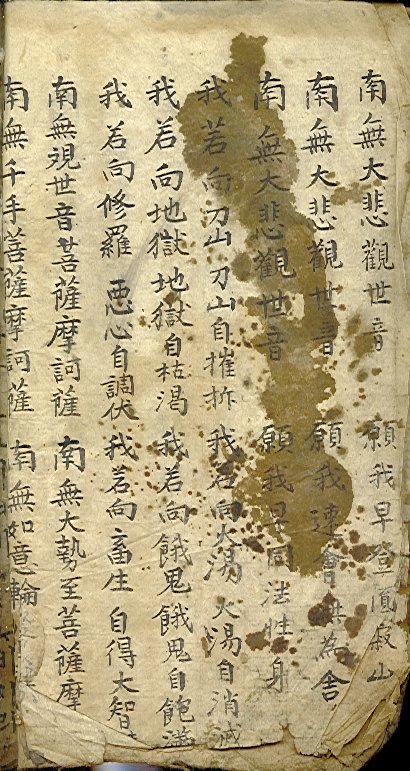 南無大悲觀世音 願我早登頂寂山
南無大悲觀世音 願我速會無為舍
南無大悲觀世音 願我早同法性身
我若向刀山刀山自摧折 我若向火湯火湯自消滅
我若向地獄地獄自枯渴 我若向餓鬼餓鬼自飽滿
我若向修羅惡心自調伏 我若向畜生自得大智
南無視世音菩薩摩訶薩 南無大勢至菩薩摩
南無千手菩薩摩訶薩 南無如意輪